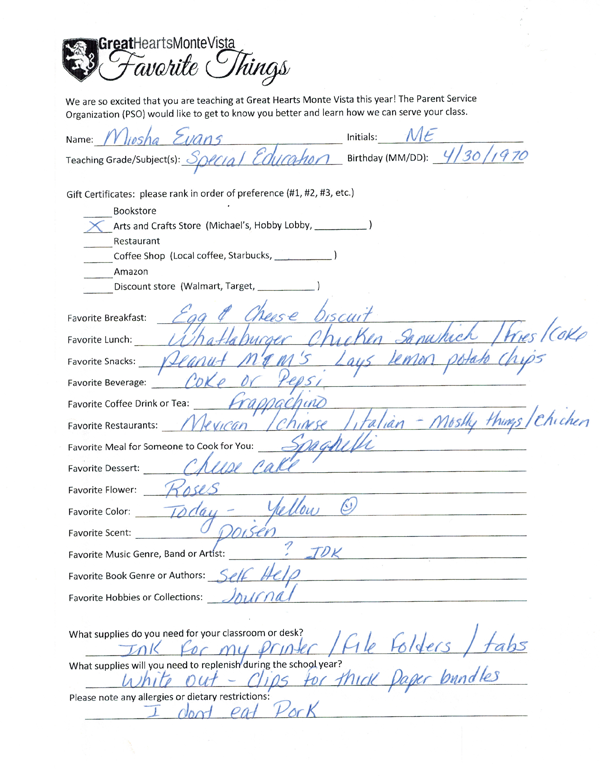 GreatHeartsMonteVista
Favorite Things
We are so excited that you are teaching at Great Hearts Monte Vista this year! The Parent Service
Organization (PSO) would like to get to know you better and learn how we can serve your class.
Name: Miosha Evans Initials: ME
Teaching Grade/Subject(s): Special Education Birthday (MM/DD): 4/30/1970
Gift Certificates: please rank in order of preference (#1, #2, #3, etc.)
Bookstore
X Arts and Crafts Store (Michael's, Hobby Lobby, __________ )
Restaurant
Coffee Shop (Local coffee, Starbucks, __________ )
Amazon
Discount store (Walmart, Target, __________ )
Favorite Breakfast: Egg & Cheese biscuit
Favorite Lunch: Whattaburger Chicken Sanwhich /fries/Coke
Favorite Snacks: Peanut M&M's Lays lemon potato chips
Favorite Beverage: Coke or Pepsi
Favorite Coffee Drink or Tea: Frappachino
Favorite Restaurants: Mexican /chinese /italian - Mostly things/Chichen
Favorite Meal for Someone to Cook for You: Spaghetti
Favorite Dessert: Cheese cake
Favorite Flower: Roses
Favorite Color: Today - Yellow ☺
Favorite Scent: Poisen
Favorite Music Genre, Band or Artist: ? IDK
Favorite Book Genre or Authors: Self Help
Favorite Hobbies or Collections: Journal
What supplies do you need for your classroom or desk?
Ink for my printer /File Folders / tabs
What supplies will you need to replenish during the school year?
White out - Clips for thick paper bundles
Please note any allergies or dietary restrictions:
I dont eat Pork